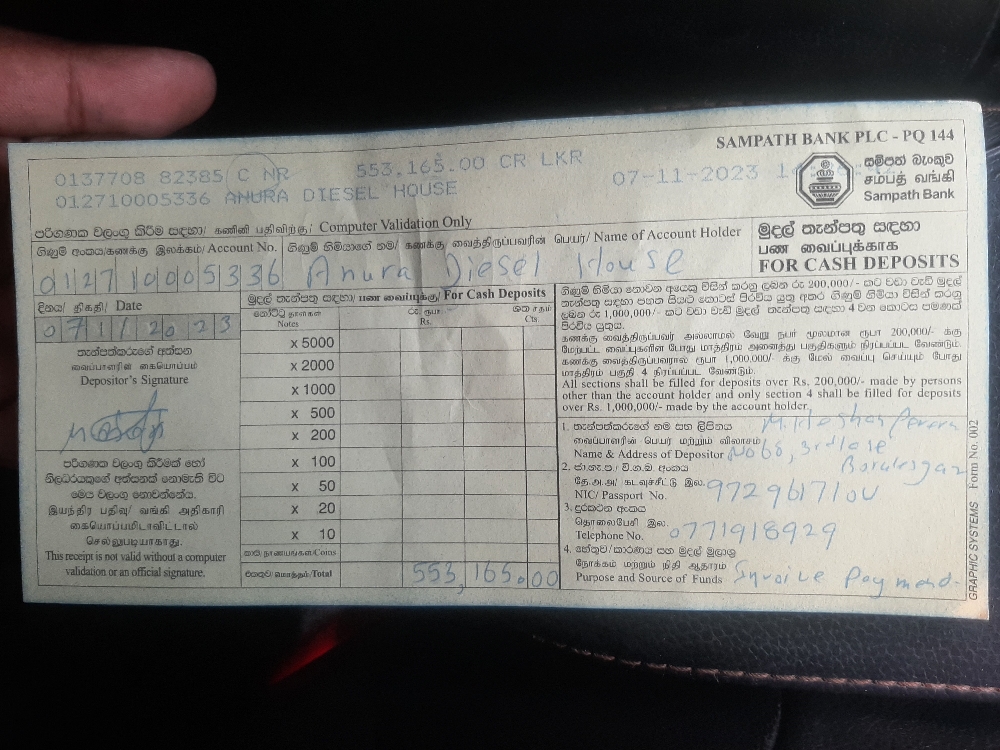 SAMPATH BANK PLC - PQ 144
0137708 82385 C NR 553,165.00 CR LKR
07-11-2023
012710005336 ANURA DIESEL HOUSE
සම්පත් බැංකුව
சம்பத் வங்கி
Sampath Bank
පරිගණක වලංගු කිරීම සඳහා/ கணினி பதிவிற்கு/ Computer Validation Only
ගිණුම් අංකය/கணக்கு இலக்கம்/Account No. ගිණුම් හිමියාගේ නම/ கணக்கு வைத்திருப்பவரின் பெயர்/ Name of Account Holder
012710005336 Anura Diesel House
මුදල් තැන්පතු සඳහා
பண வைப்புக்காக
FOR CASH DEPOSITS
දිනය/ திகதி/ Date
07112023
තැන්පත්කරුගේ අත්සන
வைப்பாளரின் கையொப்பம்
Depositor's Signature
පරිගණක වලංගු කිරීමක් හෝ
නිලධරයකුගේ අත්සනක් නොමැති විට
මෙය වලංගු නොවන්නේය.
இயந்திர பதிவு/ வங்கி அதிகாரி
கையொப்பமிடாவிட்டால்
செல்லுபடியாகாது.
This receipt is not valid without a computer
validation or an official signature.
මුදල් තැන්පතු සඳහා/ பண வைப்புக்கு/ For Cash Deposits
නෝට්ටු நாள்கள் රු. ரூபா ශත சதம்
Notes Rs. Cts.
x 5000
x 2000
x 1000
x 500
x 200
x 100
x 50
x 20
x 10
කාසි/நாணயங்கள்/Coins
එකතුව/மொத்தம்/Total 553,165.00
ගිණුම් හිමියා නොවන අයෙකු විසින් කරනු ලබන රු 200,000/- කට වඩා වැඩි මුදල්
තැන්පතු සඳහා පහත සියළු කොටස් පිරවිය යුතු අතර ගිණුම් හිමියා විසින් කරනු
ලබන රු 1,000,000/- කට වඩා වැඩි මුදල් තැන්පතු සඳහා 4 වන කොටස පමණක්
පිරවිය යුතුය.
கணக்கு வைத்திருப்பவர் அல்லாமல் வேறு நபர் மூலமான ரூபா 200,000/- க்கு
மேற்பட்ட வைப்புகளின் போது மாத்திரம் அனைத்து பகுதிகளும் நிரப்பப்பட வேண்டும்.
கணக்கு வைத்திருப்பவரால் ரூபா 1,000,000/- க்கு மேல் வைப்பு செய்யும் போது
மாத்திரம் பகுதி 4 நிரப்பப்பட வேண்டும்.
All sections shall be filled for deposits over Rs. 200,000/- made by persons
other than the account holder and only section 4 shall be filled for deposits
over Rs. 1,000,000/- made by the account holder.
1. තැන්පත්කරුගේ නම සහ ලිපිනය
வைப்பாளரின் பெயர் மற்றும் விலாசம்
Name & Address of Depositor No 60, 3rd lane
2. ජා.හැ.ප./ වි.ග.බ. අංකය
தே.அ.அ/ கடவுச்சீட்டு இல.
NIC/ Passport No. 972961710V
3. දුරකථන අංකය
தொலைபேசி இல.
Telephone No. 0771918929
4. හේතුව/කාරණය සහ මුදල් මූලාශ්‍ර
நோக்கம் மற்றும் நிதி ஆதாரம்
Purpose and Source of Funds Invoice Payment
GRAPHIC SYSTEMS Form No. 002